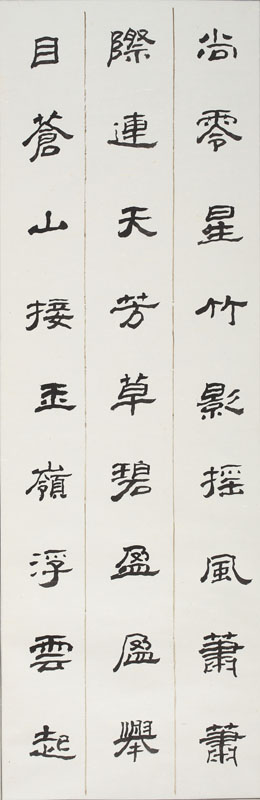 尚零星竹影摇風蕭蕭
際連天芳草碧盈盈舉
目蒼山接玉嶺浮雲起